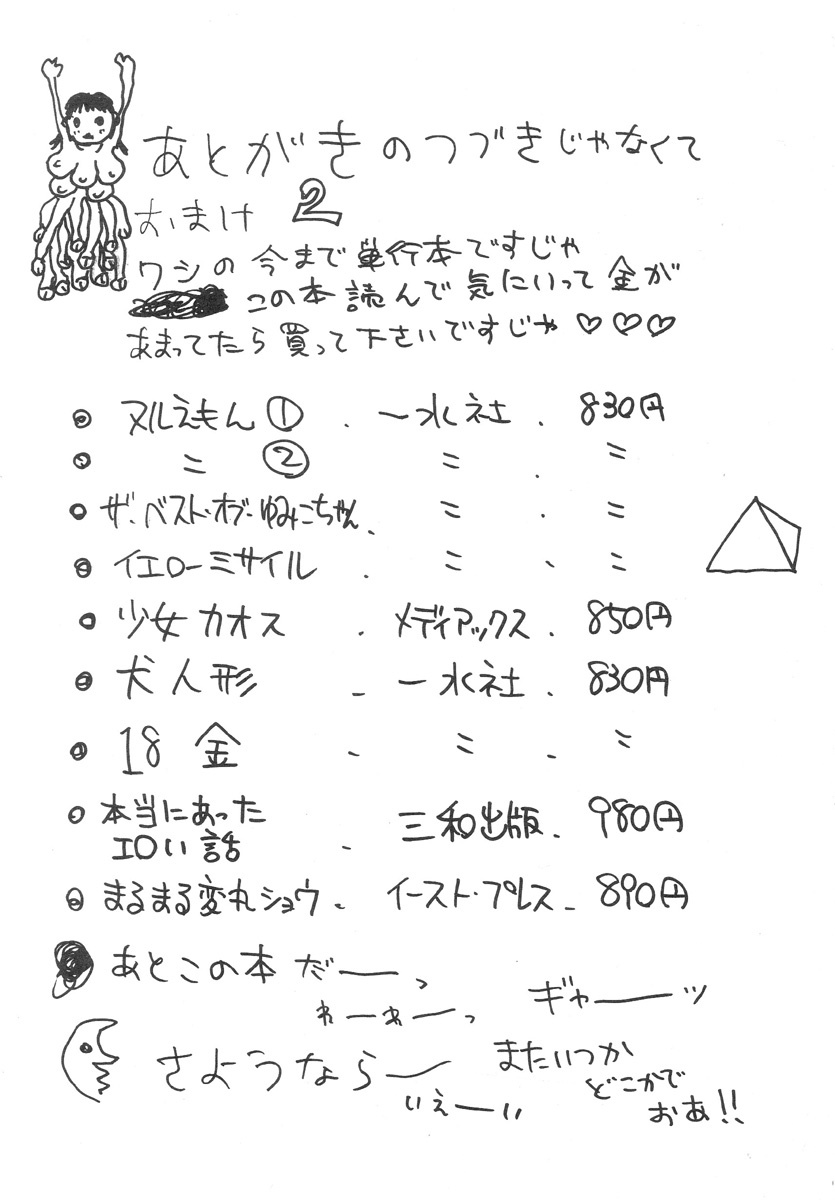 あとがきのつづきじゃなくて
おまけ 2
ワシの今まで単行本ですじゃ
この本読んで気にいって金が
あまってたら買って下さいですじゃ♡♡♡
● ヌルえもん① . 一水社 . 830円
● 〃 ② 〃 . 〃
● ザ・ベスト・オブ・ゆみこちゃん. 〃 . 〃
● イエローミサイル . 〃 . 〃
● 少女カオス . メディアックス . 850円
● 犬人形 . 一水社 . 830円
● 18金 . 〃 . 〃
● 本当にあった
エロい話 . 三和出版 . 980円
● まるまる変丸ショウ . イースト・プレス . 890円
● あとこの本だーっ
わーわーっ
ギャーッ
さようならー
いえーい
またいつか
どこかで
おあ!!